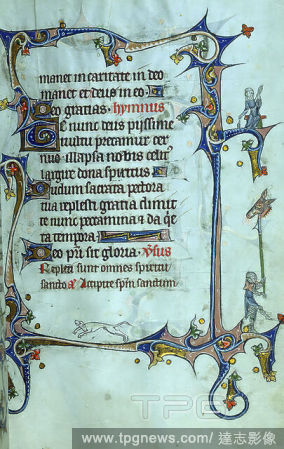 manet in caritate in deo
manet et deus in eo. D
eo gratias. hymnus
Te nunc deus pijssime
vultu precamur cer
nuo illapsa nobis celitus
largire dona spiritus
Dudum sacrata pectora
tua replesti gratia dimitte
te nunc peccamina et da quieta
tempora
Deo pri sit gloria.
Repleti sunt omnes spiritu
sancto Accipite spm sanctum
TPG
www.tpgnews.com/達志影像